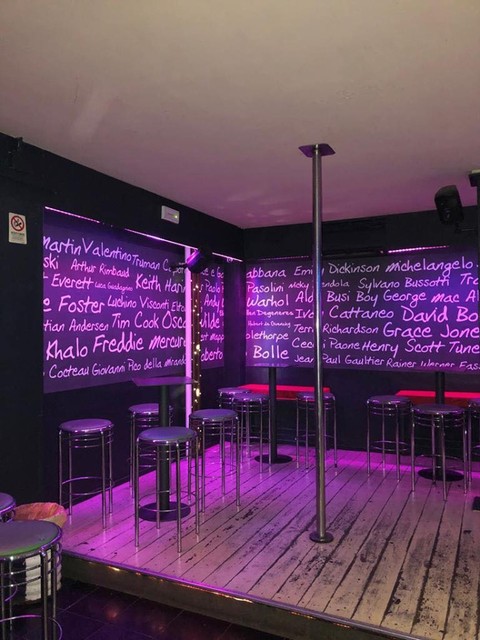 Martin Valentino Truman Capo
ski Arthur Rimbaud Keith Hari
Everett Luca Guadagnino
e Foster Luchino Visconti Elto
tian Andersen Tim Cook Osca
Khalo Freddie Mercury
Cocteau Giovanni Pico della mirando
e e b
Paolo
ilde
eberto
abbana Emi Dickinson michelangelo
Pasolini Nicky endola Sylvano Bussotti Tr
Warhol Ald Busi Boy George mac Al
len Degeneres Iv Cattaneo David Bo
Terr Richardson Grace Jone
lethorpe Cec Paone Henry Scott Tune
Bolle Jean Paul Gaultier Rainer Werner Fass